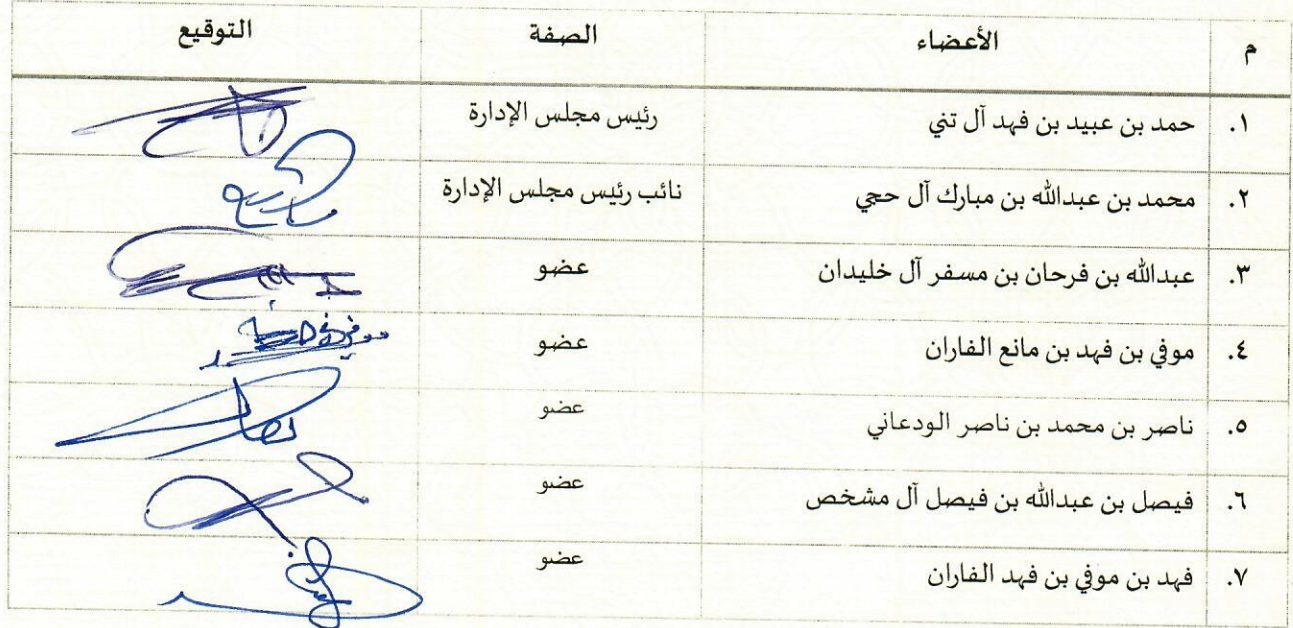 م الأعضاء الصفة التوقيع
١. حمد بن عبيد بن فهد آل تني رئيس مجلس الإدارة
٢. محمد بن عبدالله بن مبارك آل حجي نائب رئيس مجلس الإدارة
٣. عبدالله بن فرحان بن مسفر آل خليدان عضو
٤. موفي بن فهد بن مانع الفاران عضو
٥. ناصر بن محمد بن ناصر الودعاني عضو
٦. فيصل بن عبدالله بن فيصل آل مشخص عضو
٧. فهد بن موفي بن فهد الفاران عضو